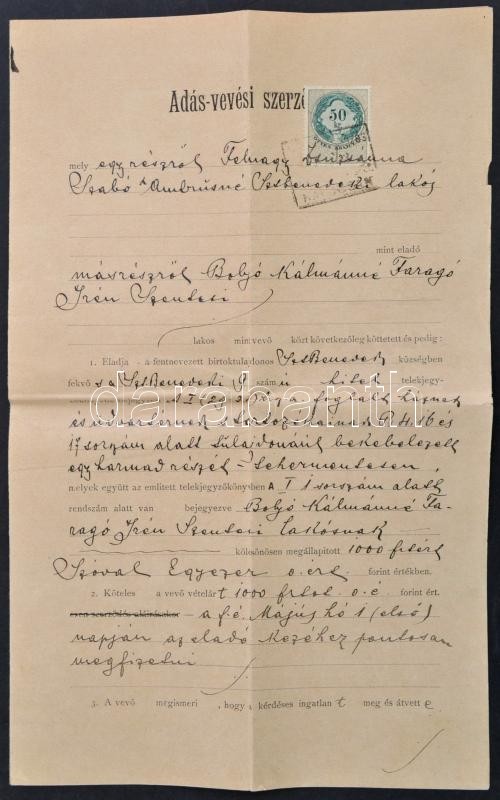 Adás-vevési szerző
50
mely egy részről Felnagy Zsuzsánna
Szabó Ambrusné Sztbenedeki lakós
mint eladó
másrészről Boljó Kálmánné Faragó
Irén Szentesi
lakos mint vevő közt következőleg köttetett és pedig:
1. Eladja a fentnevezett birtoktulajdonos SztBenedek községben
fekvő s a SztBenedeki 9 szám u hitek telekjegy-
foglalt háznak
és udvarkertnek s tartozékainak R 4. 16 és
17 sorszám alatt tulajdonául bekebelezett
egyharmad részét tehermentesen,
melyek együtt az említett telekjegyzőkönyvben A I 1 sorszám alatt
rendszám alatt van bejegyezve Boljó Kálmánné Fa-
ragó Irén Szentesi lakósnak
kölcsönösen megállapított 1000 frtért
Szóval Egyezer o.ért. forint értékben.
2. Köteles a vevő vételárt 1000 frtot o.é. forint ért.
ezen szerződés aláírásakor a f.é. Május hó 1 (első)
napján az eladó kezéhez pontosan
megfizetni
3. A vevő megismeri, hogy a kérdéses ingatlan t meg és átvett e
darabanth